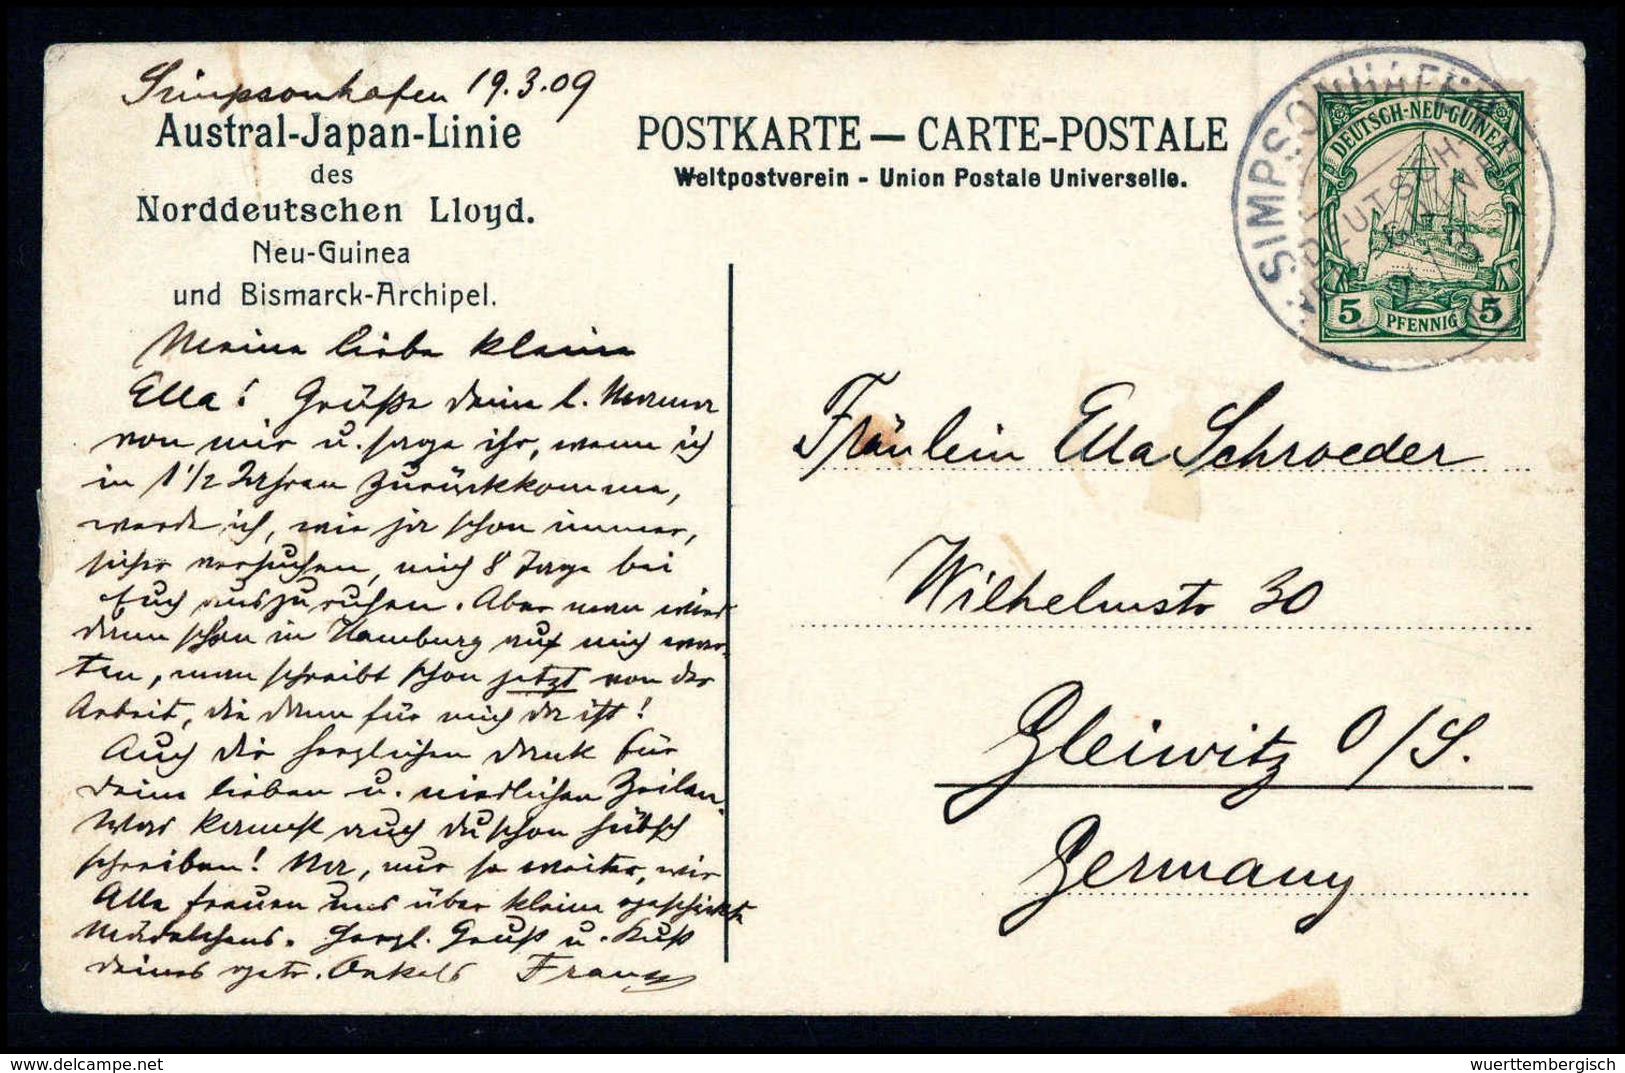 Simpsonhafen 19.3.09
Austral-Japan-Linie
des
Norddeutschen Lloyd.
Neu-Guinea
und Bismarck-Archipel.
POSTKARTE — CARTE-POSTALE
Weltpostverein - Union Postale Universelle.
SIMPSONHAFEN
DEUTSCH-NEU-GUINEA
5 PFENNIG 5
Meine liebe kleine
Ella! Grüße deine l. Mama
von mir u. sage ihr, wenn ich
in 1 1/2 Jahren zurückkomme,
werde ich, wie ja schon immer,
sicher versuchen, mich 8 Tage bei
Euch auszuruhen. Aber man wird
dann schon in Hamburg auf mich war-
ten, man schreibt schon jetzt von der
Arbeit, die dann für mich da ist!
Auch dir herzlichen Dank für
deine lieben u. niedlichen Zeilen.
Was kannst auch du schon hübsch
schreiben! Na, nur so weiter, wir
Alle freuen uns über kleine geschickte
Mädelchens. Herzl. Gruß u. Kuß
deines getr. Onkels Franz
Fräulein Ella Schroeder
Wilhelmstr 30
Gleiwitz O/S.
Germany
wuerttembergisch